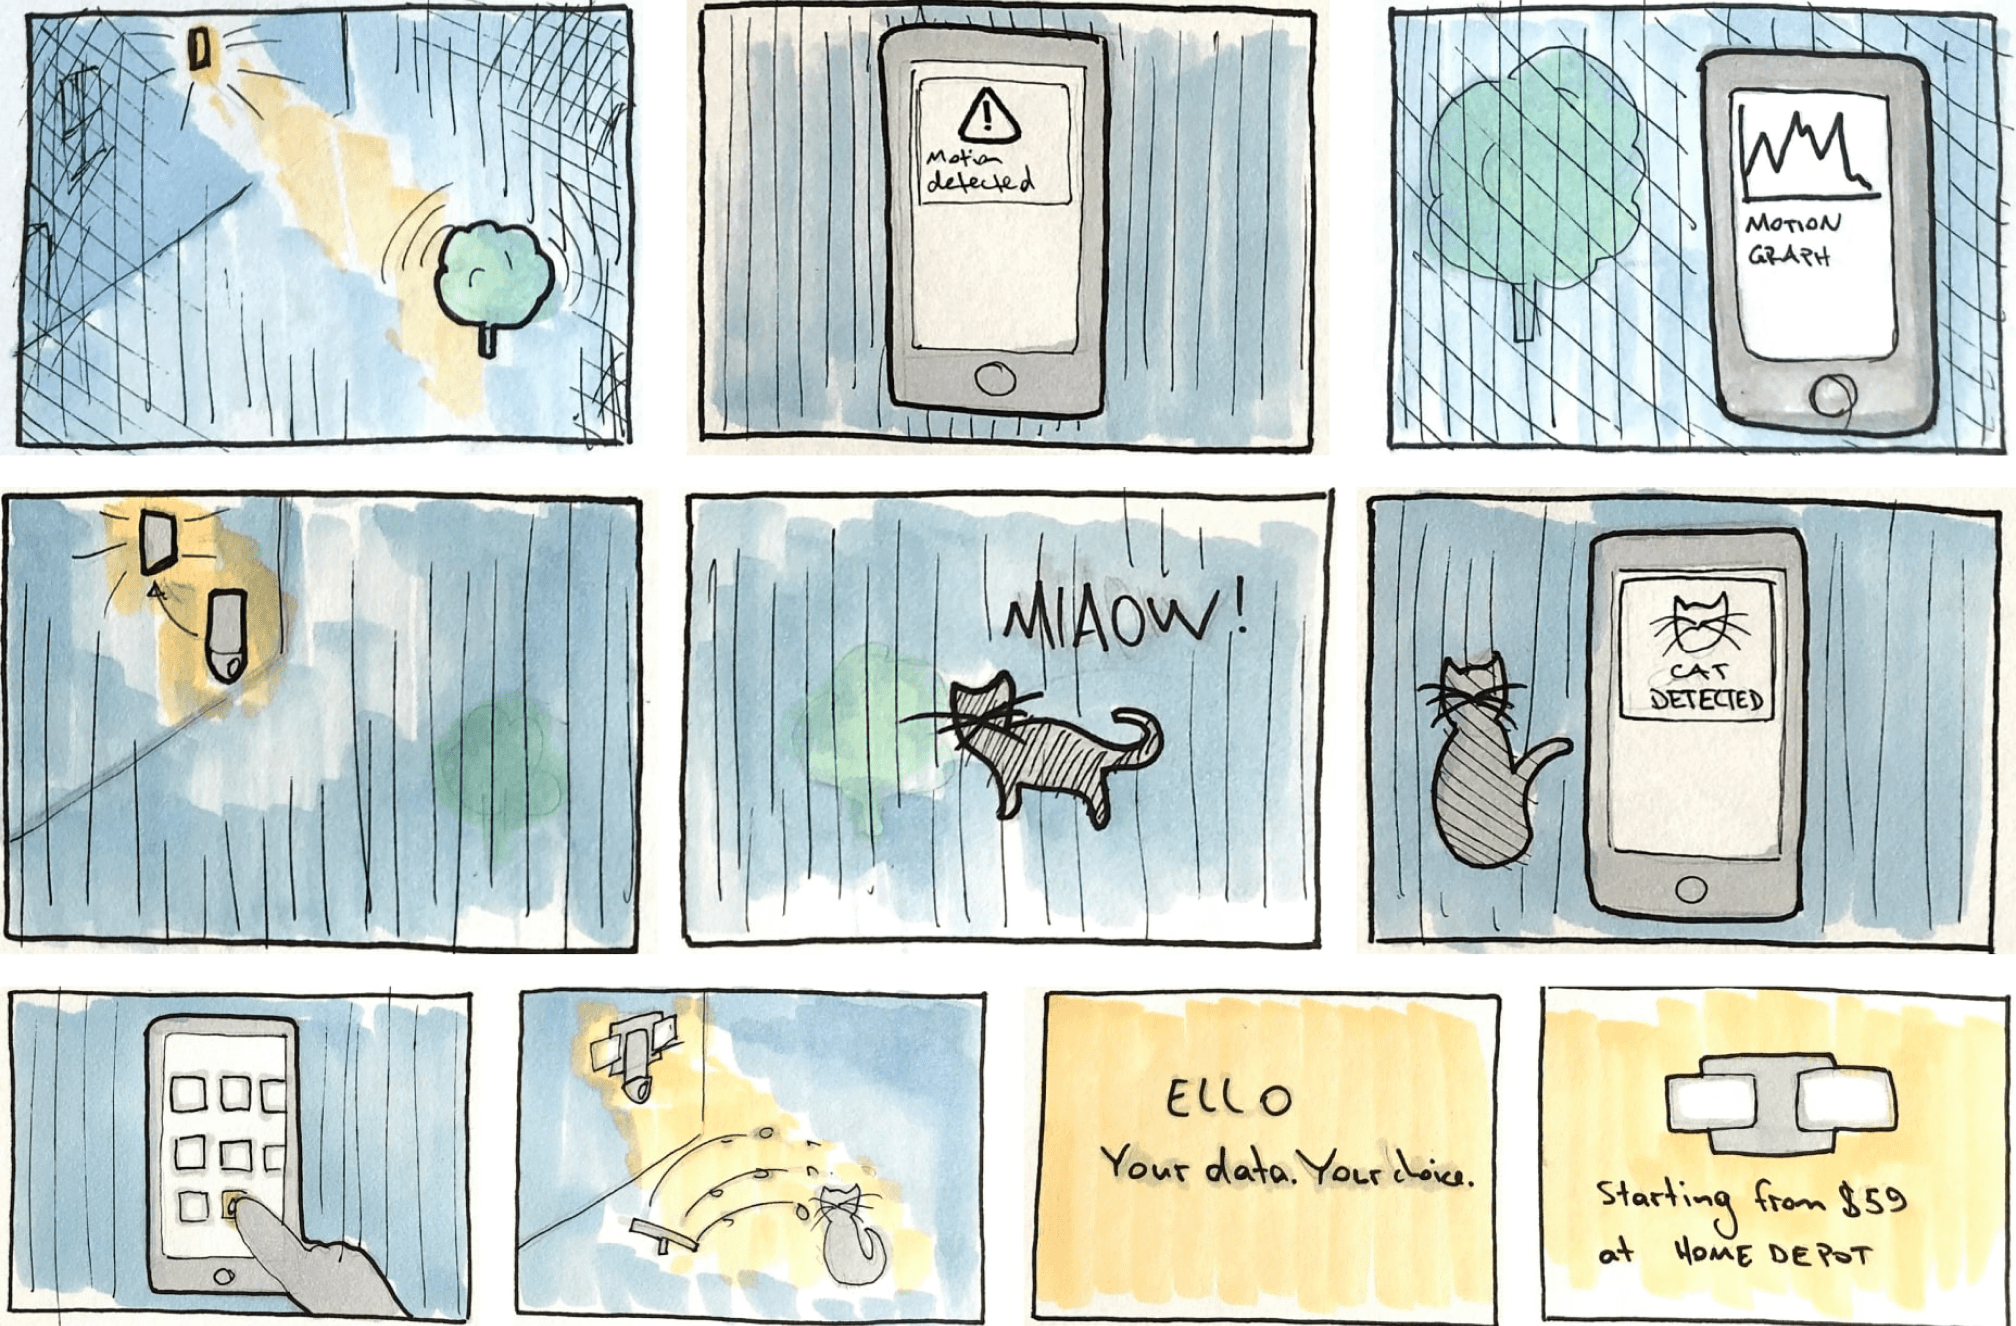 !
Motion
detected
MOTION
GRAPH
MIAOW!
CAT
DETECTED
ELLO
Your data. Your choice.
Starting from $59
at HOME DEPOT